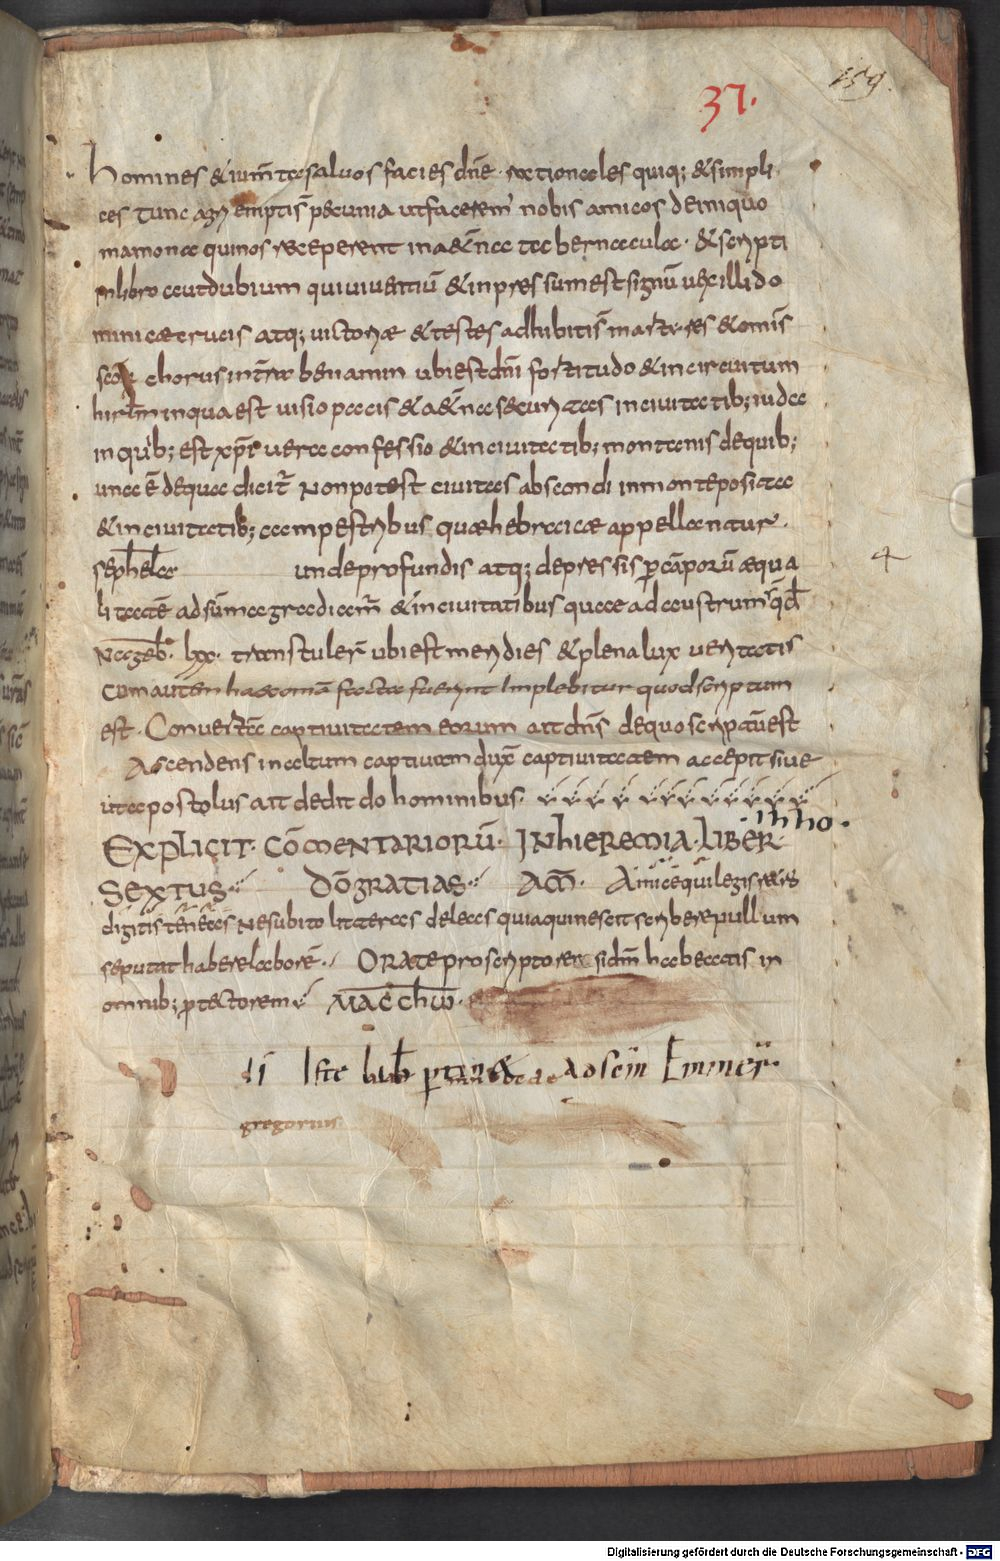 159.
37.
homines & ium̄ta salvos facies dn̄e. rationales quiq; & simpli
ces tunc agri emptis̄ p&cunia ut facerem' nobis amicos de iniquo
mamona qui nos reciperent in a&̄na tabernacula. & scripti
in libro aut dubium qui viventiū & inpressum est signū vexilli do
minicæ crucis atq; victoriæ & testes adhibitis̄ martires & omīs
scōꝝ chorus in t̄ra beniamin ubi est dn̄i fortitudo & in circuitum
hirl̄m in qua est visio pacis & a&̄na securitas in civitatib; iudæ
in quib; est xp̄i vera confessio & in civitatib; montanis de quib;
una ē de qua dicit̄ Non potest civitas abscondi in monte posita
& in civitatib; campestribus quæ hebraicæ appellantur.
sephela unde profundis atq; depressis p cāporū æqua
litatē ad sūma gradiem̄ & in civitatibus quæ ad austrum qd̄
Nageb. lxx. transtuler̄ ubi est meridies & plena lux veritatis
Cum autem hæc omā facta fuerint Implebitur quod scriptum
est. Convertā captivitatem eorum ait dn̄s de quo scriptū est
Ascendens in altum captivam dux̄ captivitatem accepit sive
ut apostolus ait dedit do hominibus.
EXPLICIT. CŌMENTARIORŪ. IN HIEREMIA. LIBER
SEXTUS DŌ GRATIAS AM̄. Amice qui legis r&ro
digitis teneas Ne subito litteras deleas quia qui nescit scribere pullum
se putat habere laborē. ORATE pro scriptore si dn̄m habeatis in
omnib; p̄tectorem
di Iste lib̄ ptin& ad scm̄ Emmer̄.
gregorius